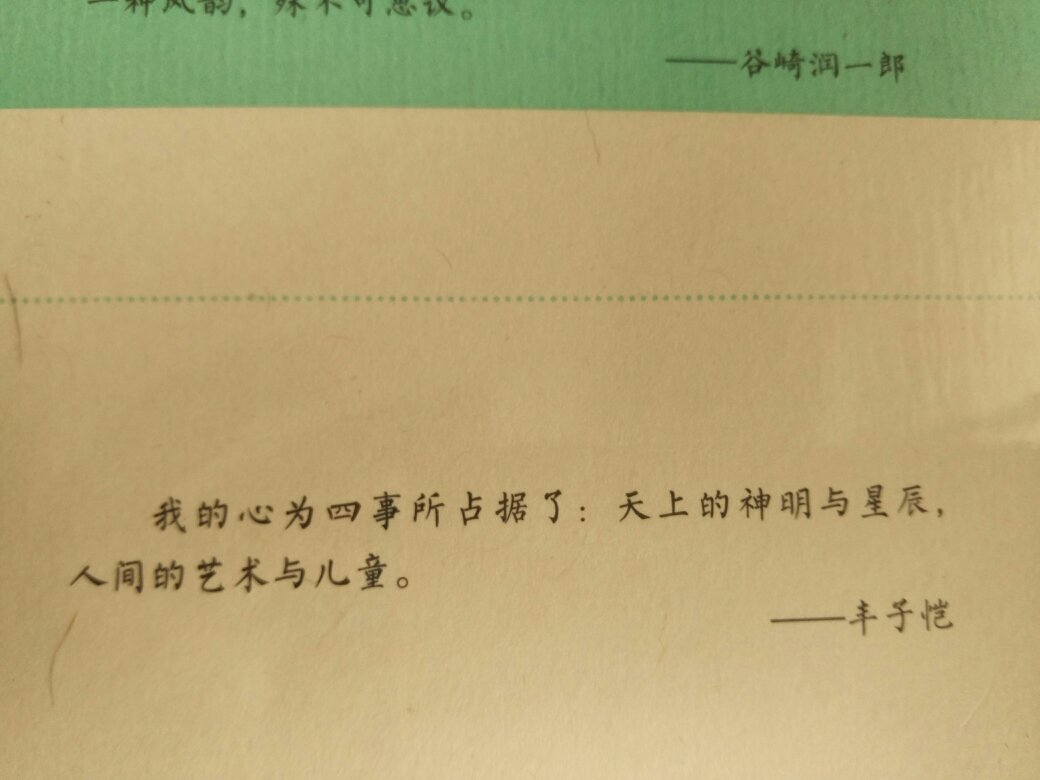 一种风韵，殊不可思议。
——谷崎润一郎
我的心为四事所占据了：天上的神明与星辰，
人间的艺术与儿童。
——丰子恺